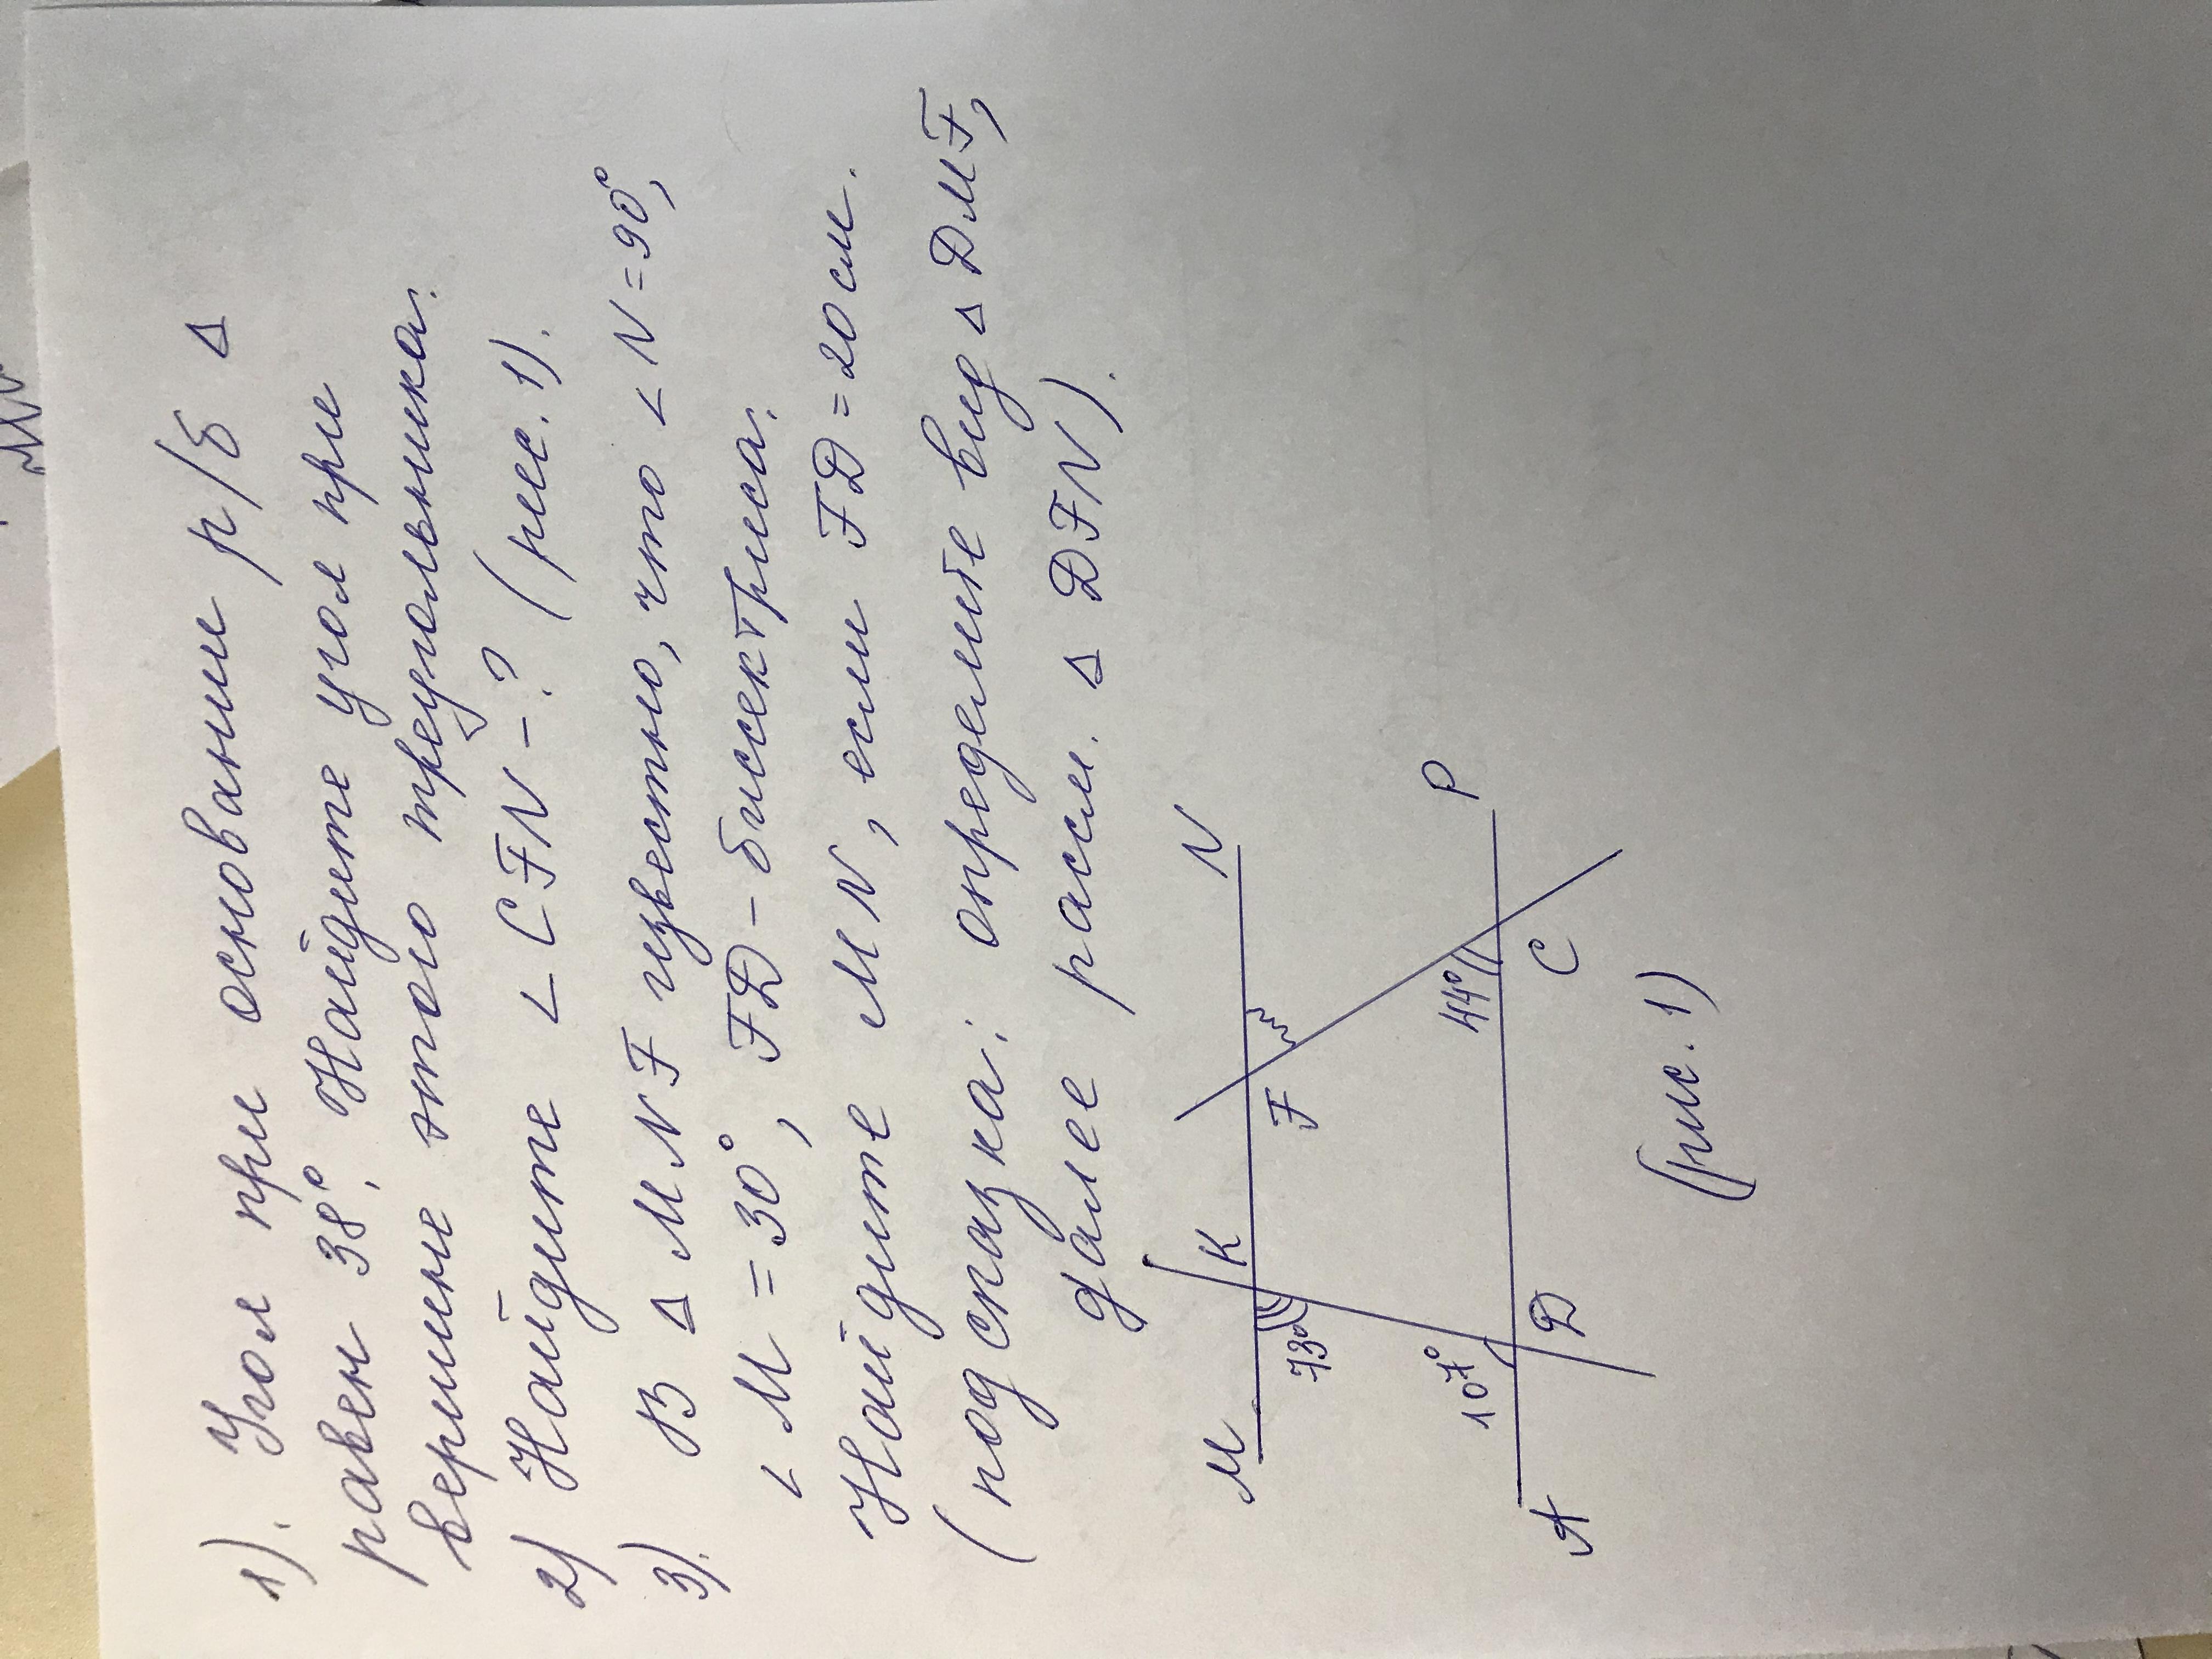 1). Угол при основании р/б Δ
равен 38°. Найдите угол при
вершине этого треугольника.
2) Найдите ∠CFN - ? (рис. 1).
3). В Δ MNF известно, что ∠N = 90°,
∠M = 30°, FD - биссектриса.
Найдите MN, если FD = 20 см.
(подсказка: определите вид Δ DMF,
далее рассм. Δ DFN).
M K F N
73°
107° 44°
A D C P
(рис. 1)